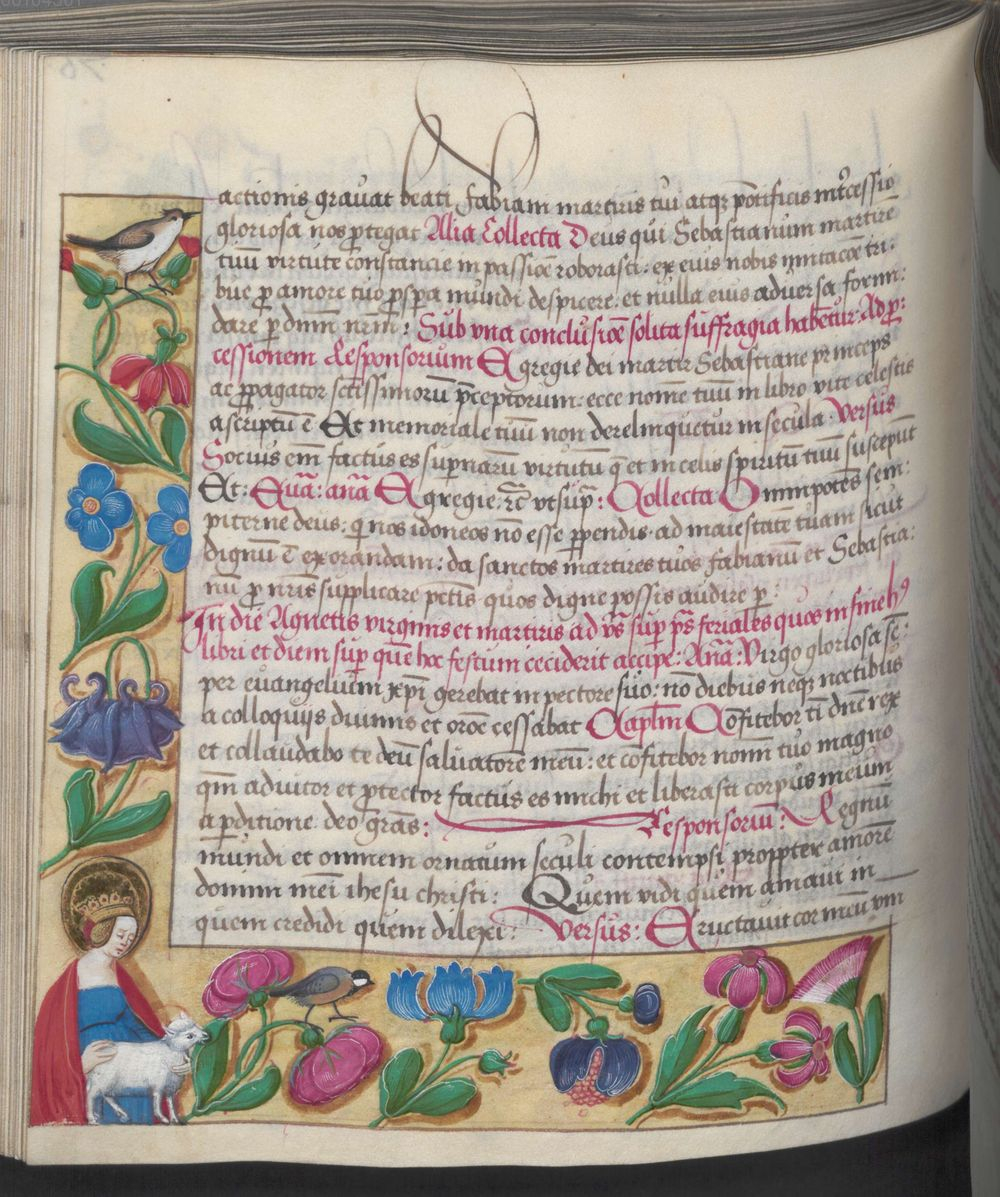 actionis grauat beati fabiam martiris tui atqz põtificis intcessio
gloriosa nos ptegat Alia Collecta Deus qui Sebastianum martirē
tuū virtute constancie in passiōe roborasti: ex eius nobis imitacōe tri:
bue p amore tuo pspa mundi despicere: et nulla eius aduersa formi:
dare p dnm nrm: Sub vna conclusiōe solita suffragia habētur: Ad p:
cessionem Responsorium Egregie dei martir Sebastiane princeps
ac ppagator sctissimorū pceptorum: ecce nomē tuū in libro vite celestis
ascriptū ē Et memoriale tuū non derelinquetur in secula Versus
Socius em factus es supnarū virtutū q et in celis spiritū tuū suscepit
Et: Euā: anā Egregie: rē vt sup: Collecta Omnipotēs sem:
piterne deus: q nos idoneos nō esse ppendis ad maiestatē tuam sicut
dignū ē exorandam: da sanctos martires tuos fabianū et Sebastia:
nū p nris supplicare pctis quos digne possis audire p
In die Agnetis virginis et martiris ad vs sup ps feriales quos in fine h9
libri et diem sup quē hoc festum ceciderit accipe: Anā: Virgo gloriosa sē:
per euangelium xpi gerebat in pectore suo: nō diebus neqz noctibus
a colloquijs diuinis et orōe cessabat Caplm Cōfitebor ti dne rex
et collaudabo te deū saluatorē meū: et cōfitebor nomi tuo magno
qm adiutor et ptector factus es michi et liberasti corpus meum
a pditione deo gras: Responsoriū: Regnū
mundi et omnem ornatum seculi contempsi proppter amorē
domini mei ihesu christi: Quem vidi quem amaui in
quem credidi quem dilexi: Versus: Eructauit cor meū vm